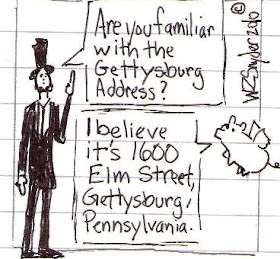 Are you familiar
with the
Gettysburg
Address?
I believe
it's 1600
Elm Street,
Gettysburg,
Pennsylvania.
© WZSnyder 2010